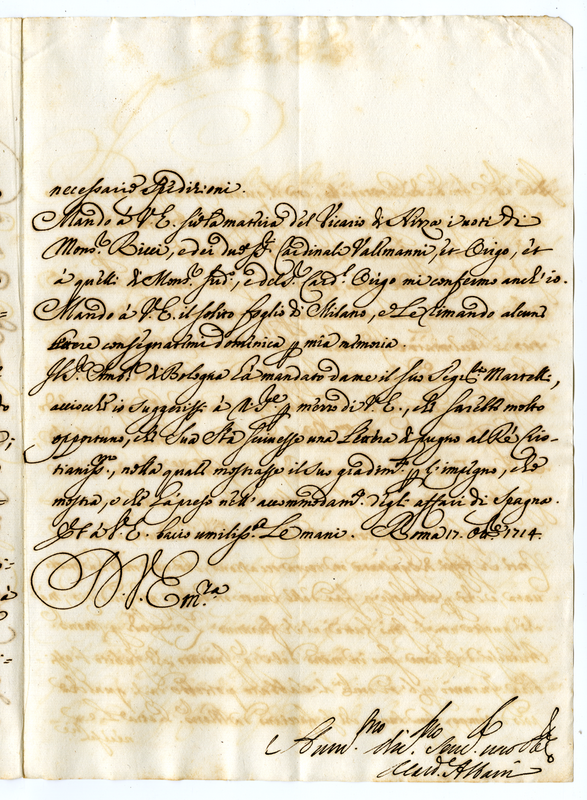 necessarie spedizioni.
Mando à V. E. sù la materia del Vicario di Nizza i voti di
Mons.r Ricci, e dei due SS.ri Cardinali Vallmanni, et Origo, et
à quelli di Mons.r sud.o, e del S.r Card.l Origo mi confermo anch' io.
Mando à V. E. il solito foglio di Milano, e Le rimando alcune
lettere consegnatemi dominica p mia memoria.
di Bologna hà mandato da me il suo Seg.rio Martelli,
acciochè io suggerissi à p mezzo di V. E., che sarebbe molto
opportuno, che Sua S.tà scrivesse una Lettera di pugno al Rè Cris-
tianiss.o, nella quale mostrasse il suo gradim.to p l' impegno, che
mostra, e che hà preso nell' accommodam.to degl' affari di Spagna.
Et à V. E. bacio umiliss.e Le mani. Roma 17. Ott.re 1714.
D. V. Em.za
Hum.mo
Card.e Albani